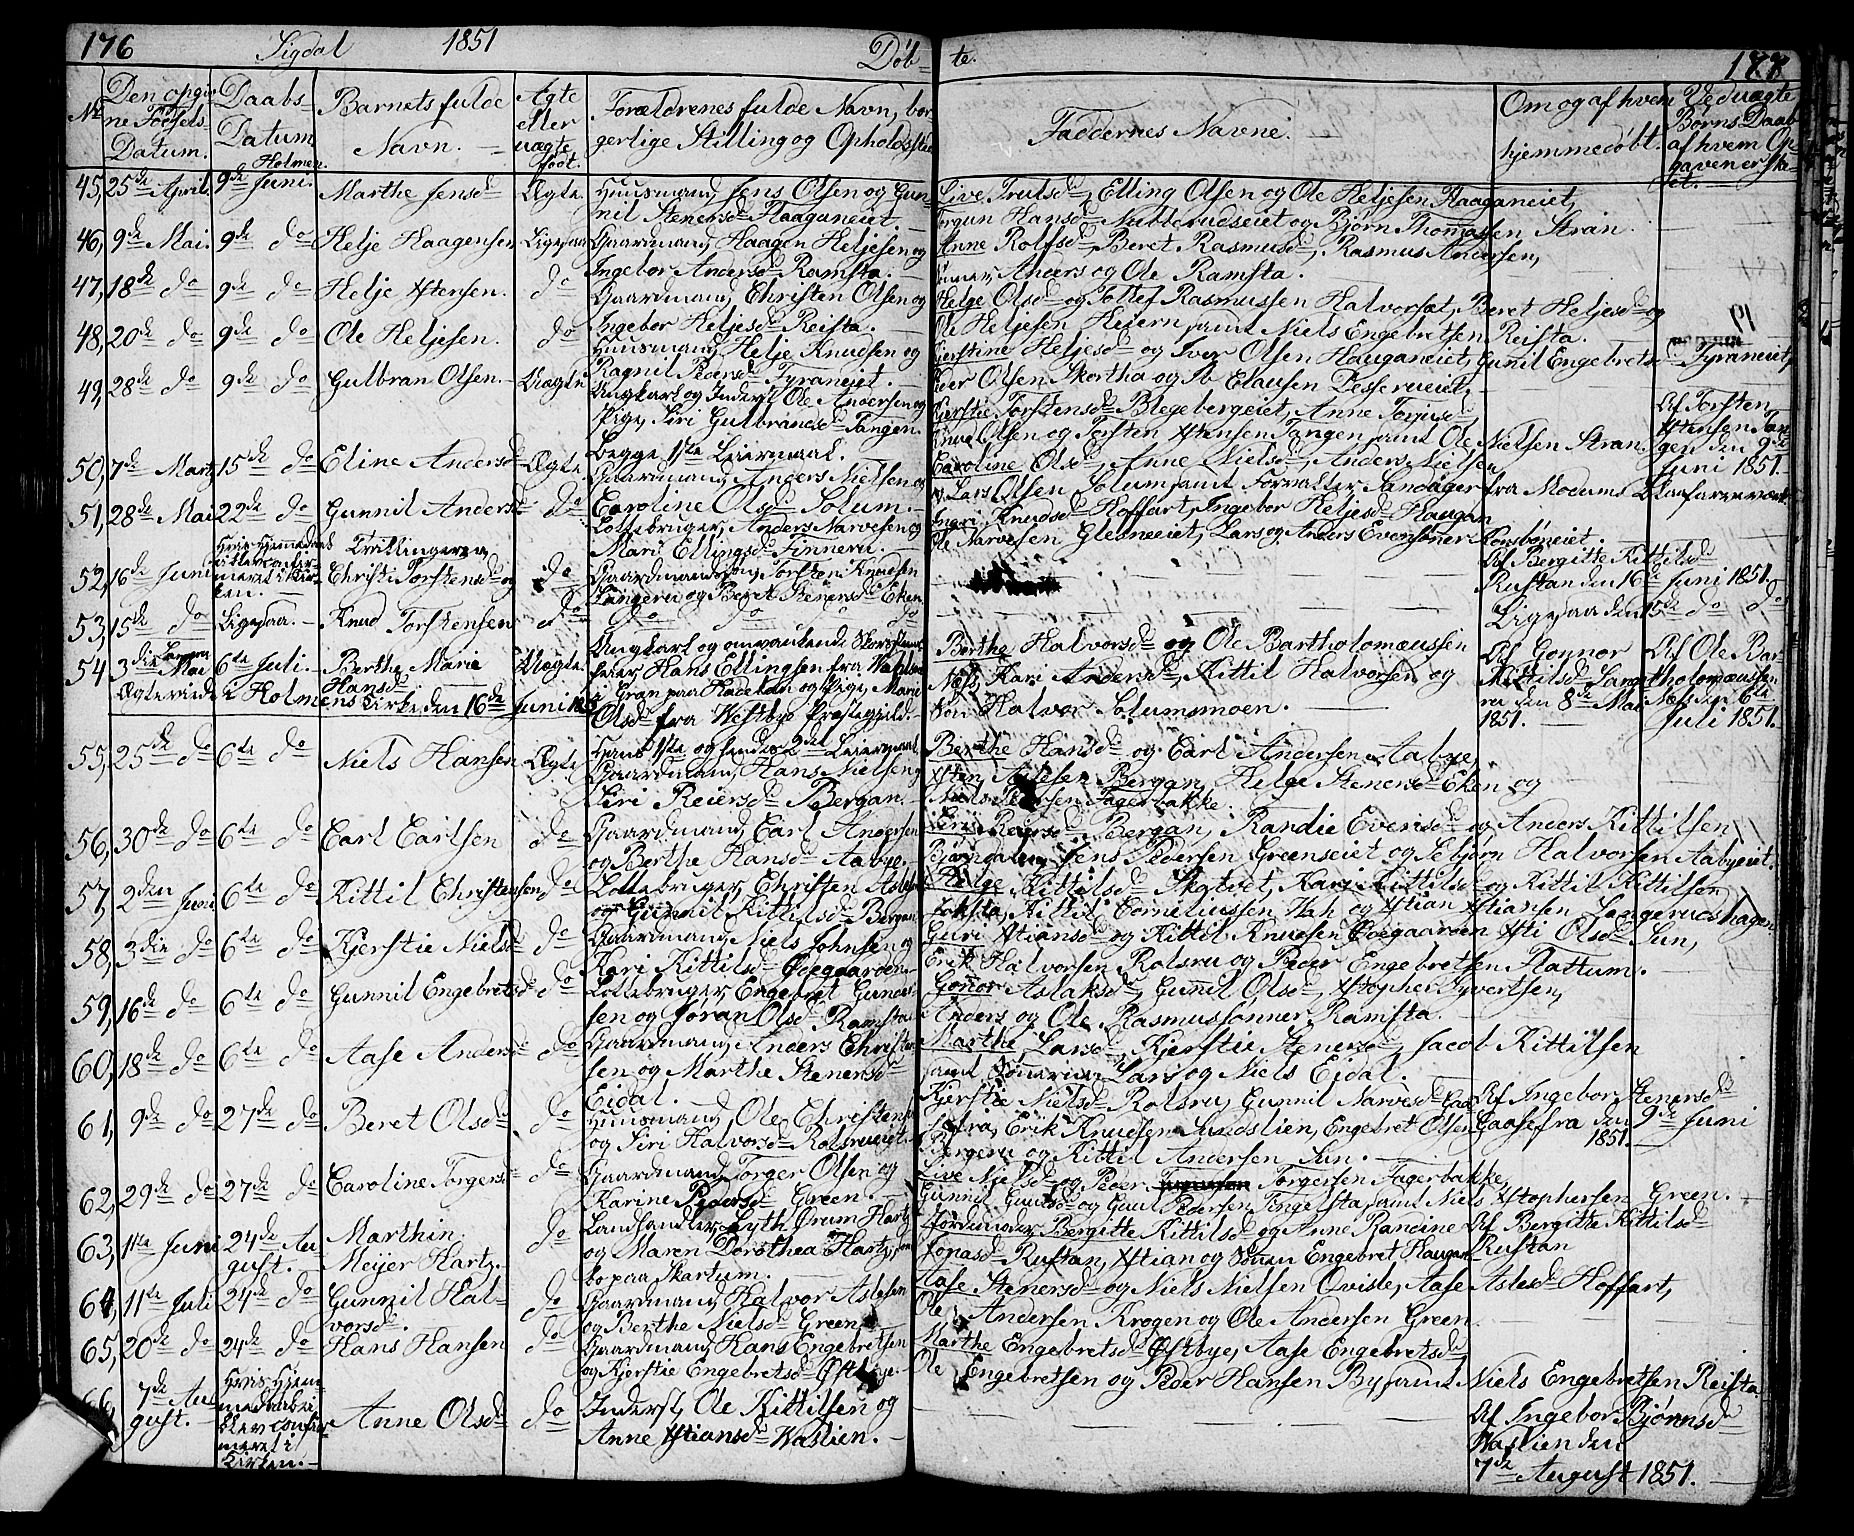 176 Sigdal 1851 Döb-
te. 177
No Den opgivne Födsels Datum.
Daabs Datum Holmen.
Barnets fulde Navn.
Ægte eller uægte född.
Forældrenes fulde Navn, borgerlige Stilling og Opholdssted
Faddernes Navne.
Om og af hvem hjemmedöbt.
Ved uægte Börns Daab af hvem Opgaven er skeet.
45, 25de April. 9de Juni. Marthe Jensd Ægte. Huusmand, Jens Olsen og Gunnil Stenersd Haaganeiet
Live Trulsd, Elling Olsen og Ole Heljesen Haaganeiet,
Jörgun Hansd Nubberudseiet og Björn Thomassen Stran.
46, 9de Mai. 9de do Helje Haagensen Ligesaa Gaardmand, Haagen Heljesen og
Ingebor Andersd Ramsta.
Anne Rolfsd, Beret Rasmusd, Rasmus Andersen,
Anders og Ole Ramsta.
47, 18de do 9de do Helje Xstensen. do Gaardmand, Christen Olsen og
Ingebor Heljesd Reista.
Helge Olsd og Tollef Rasmussen Halvorset, Beret Heljesd og
Ole Heljesen Heiern samt Niels Engebretsen Reista.
48, 20de do 9de do Ole Heljesen. do Huusmand, Helje Knudsen og
Ragnil Pedersd Tyraneiet.
Kjerstine Heljesd og Iver Olsen Hauganeiet, Gunil Engebretsd Tyraneiet,
Peer Olsen Skortha og Ib Clausen Desserueiet,
49, 28de do 9de do Gulbran Olsen. Uægte Ungkarl og Inderst, Ole Andersen og
Pige, Siri Gulbrandsd Tangen.
Begge 1ste Leiermaal.
Kjerstie Torstensd Blegebergeiet, Anne Torgusd
Knud Olsen og Torsten Xstensen Tangen samt Ole Nielsen Stran.
Af Torsten
Xstensen Tan-
gen den 9de
Juni 1851.
50, 7de Marts 15de do Eline Andersd Ægte. Gaardmand, Anders Nielsen og
Caroline Olsd Solum.
Caroline Olsd, Anne Nielsd, Anders Nielsen
og Lars Olsen Solum samt Forvalter Sandager fra Modums Blaafarveværk.
51, 28de Mai 22de do Gunnil Andersd do Lottebruger, Anders Narvesen og
Mari Ellingsd Finneru.
Ingri Knudsd Hoffart, Ingebor Heljesd Haugan
Ole Narvesen Glesneeiet, Lars og Anders Evensönner Lonsböneiet.
52, 16de Juni Hvis Hjemmedaab siden confirmeret i Kirken. Tvillingerne, Christi Torstensd og do Gaardmandssön, Torsten Knudsen
Langeru og Beret Stenersd Eken
Af Bergitte Kittilsd
Rustan den 16de Juni 1851.
53, 15de do Ligesaa. Knud Torstensen do do do do
Ligesaa den 15de do do
54 3die Mai 6te Juli. Berthe Marie
Hansd Uægte. Ungkarl og omvankende Skorsteens-
feier, Hans Ellingsen fra
i Gran paa Hadeland og Pige, Marie
Olsd fra Westbye Præstegjeld.
Hans 1ste og hendes 2det Leiermaal.
Ægteviede i Holmens Kirke den 16de Juni
Berthe Halvorsd og Ole Bartholomæussen
Næs, Kari Andersd, Kittil Halvorsen og
Sön Halvor Solumsmoen.
Af Gonnor
Kittilsd Lange-
ru den 8de Mai
1851.
Af Ole Bar-
tholomæussen
Næs den 6te
Juli 1851.
55, 25de do 6te do Niels Hansen Ægte, Gaardmand, Hans Nielsen og
Siri Reiersd Bergan.
Berthe Hansd og Carl Andersen Aabye,
Xsten Aslesen Bergan, Helge Stenersd Eken og
Niels Pedersen Fagerbakke.
56, 30de do 6te do Carl Carlsen do Gaardmand, Carl Andersen
og Berthe Hansd Aabye.
Siri Reiersd Bergan, Randie Evensd og Anders Kittilsen
Bjöndalen, Jens Pedersen Greenseiet og Sebjörn Halvorsen Aabyeiet.
57, 2den Juni 6te do Kittil Christensen do Lottebruger, Christen Aslesen
og Gunnil Kittilsd Bergan
Helge Kittilsd Skatvet, Kari Kittilsd og Kittil Kittilsen
Joksta, Kittil Corneliussen Wah og Xstian Xstiansen Langerudshagen
58, 3die do 6te do Kjerstie Nielsd do Gaardmand, Niels Johnsen og
Kari Kittilsd Ödegaarden.
Guri Xstiansd og Kittil Knudsen Ödegaarden Xsti Olsd Sun,
Erik Halvorsen Rolsru og Peder Engebretsen Flattum.
59, 16de do 6te do Gunnil Engebretsd do Lottebruger, Engebret Gunders-
sen og Joran Olsd Ramsta
Gonor Aslaksd, Gunil Olsd, Xstopher Syvertsen,
Anders og Ole Rasmussönner Ramsta.
60, 18de do 6te do Aase Andersd do Gaardmand, Anders Christen-
sen og Marthe Stenersd
Eidal.
Marthe Larsd, Kjerstie Stenersd, Jacob Kittilsen
samt Sönnerne Lars og Niels Eidal.
61, 9de do 27de do Beret Olsd do Huusmand, Ole Christensen
og Siri Halvorsd Rolsrueiet.
Kjerstie Nielsd Rolsru, Gunnil Narvesd Gaa-
sefra, Erik Knudsen Sundslien, Engebret Olsen
Bergeru og Kittil Andersen Sun.
Af Ingebor Stenersd
Gaasefra den 9de Juni
1851.
62, 29de do 27de do Caroline Torgersd do Gaardmand, Torger Olsen og
Karine Pedersd Green.
Live Nielsd og Peder Torgersen Fagerbakke,
Gunnil Gulsd og Gul Pedersen Tingelsta samt Niels Xstophersen Green.
63, 11te Juni 24de Au-
gust. Marthin
Meijer Hartz. do Landhandler, Lyth Drum Hartz
og Maren Dorothea Hartz,
bo paa Skartum.
Jordemoder, Bergitte Kittilsd og Anne Randine
Jonasd Rustan, Xstian og Sönn Engebret Haugan
Af Bergitte Kittilsd
Rustan
64, 11te Juli 24de do Gunnil Hal-
vorsd. do Gaardmand, Halvor Aslesen
og Berthe Nielsd Green.
Aase Stenersd og Niels Nielsen Qvisle, Aase Aslesd Hoffart,
Ole Andersen Krogen og Ole Andersen Green.
65, 20de do 24de do Hans Hansen do Gaardmand, Hans Engebretsen
og Kjerstie Engebretsd Östbye.
Marthe Engebretsd Östbye, Aase Engebretsd
Ole Engebretsen og Peder Hansen By samt Niels Engebretsen Reista
66, 7de Au-
gust. Hvis Hjem-
medaab
blev confir-
meret i
Kirken. Anne Olsd do Inderst, Ole Kittilsen og
Anne Xstiansd Waslien.
Af Ingebor Björnsd
Waslien den
7de August 1851.